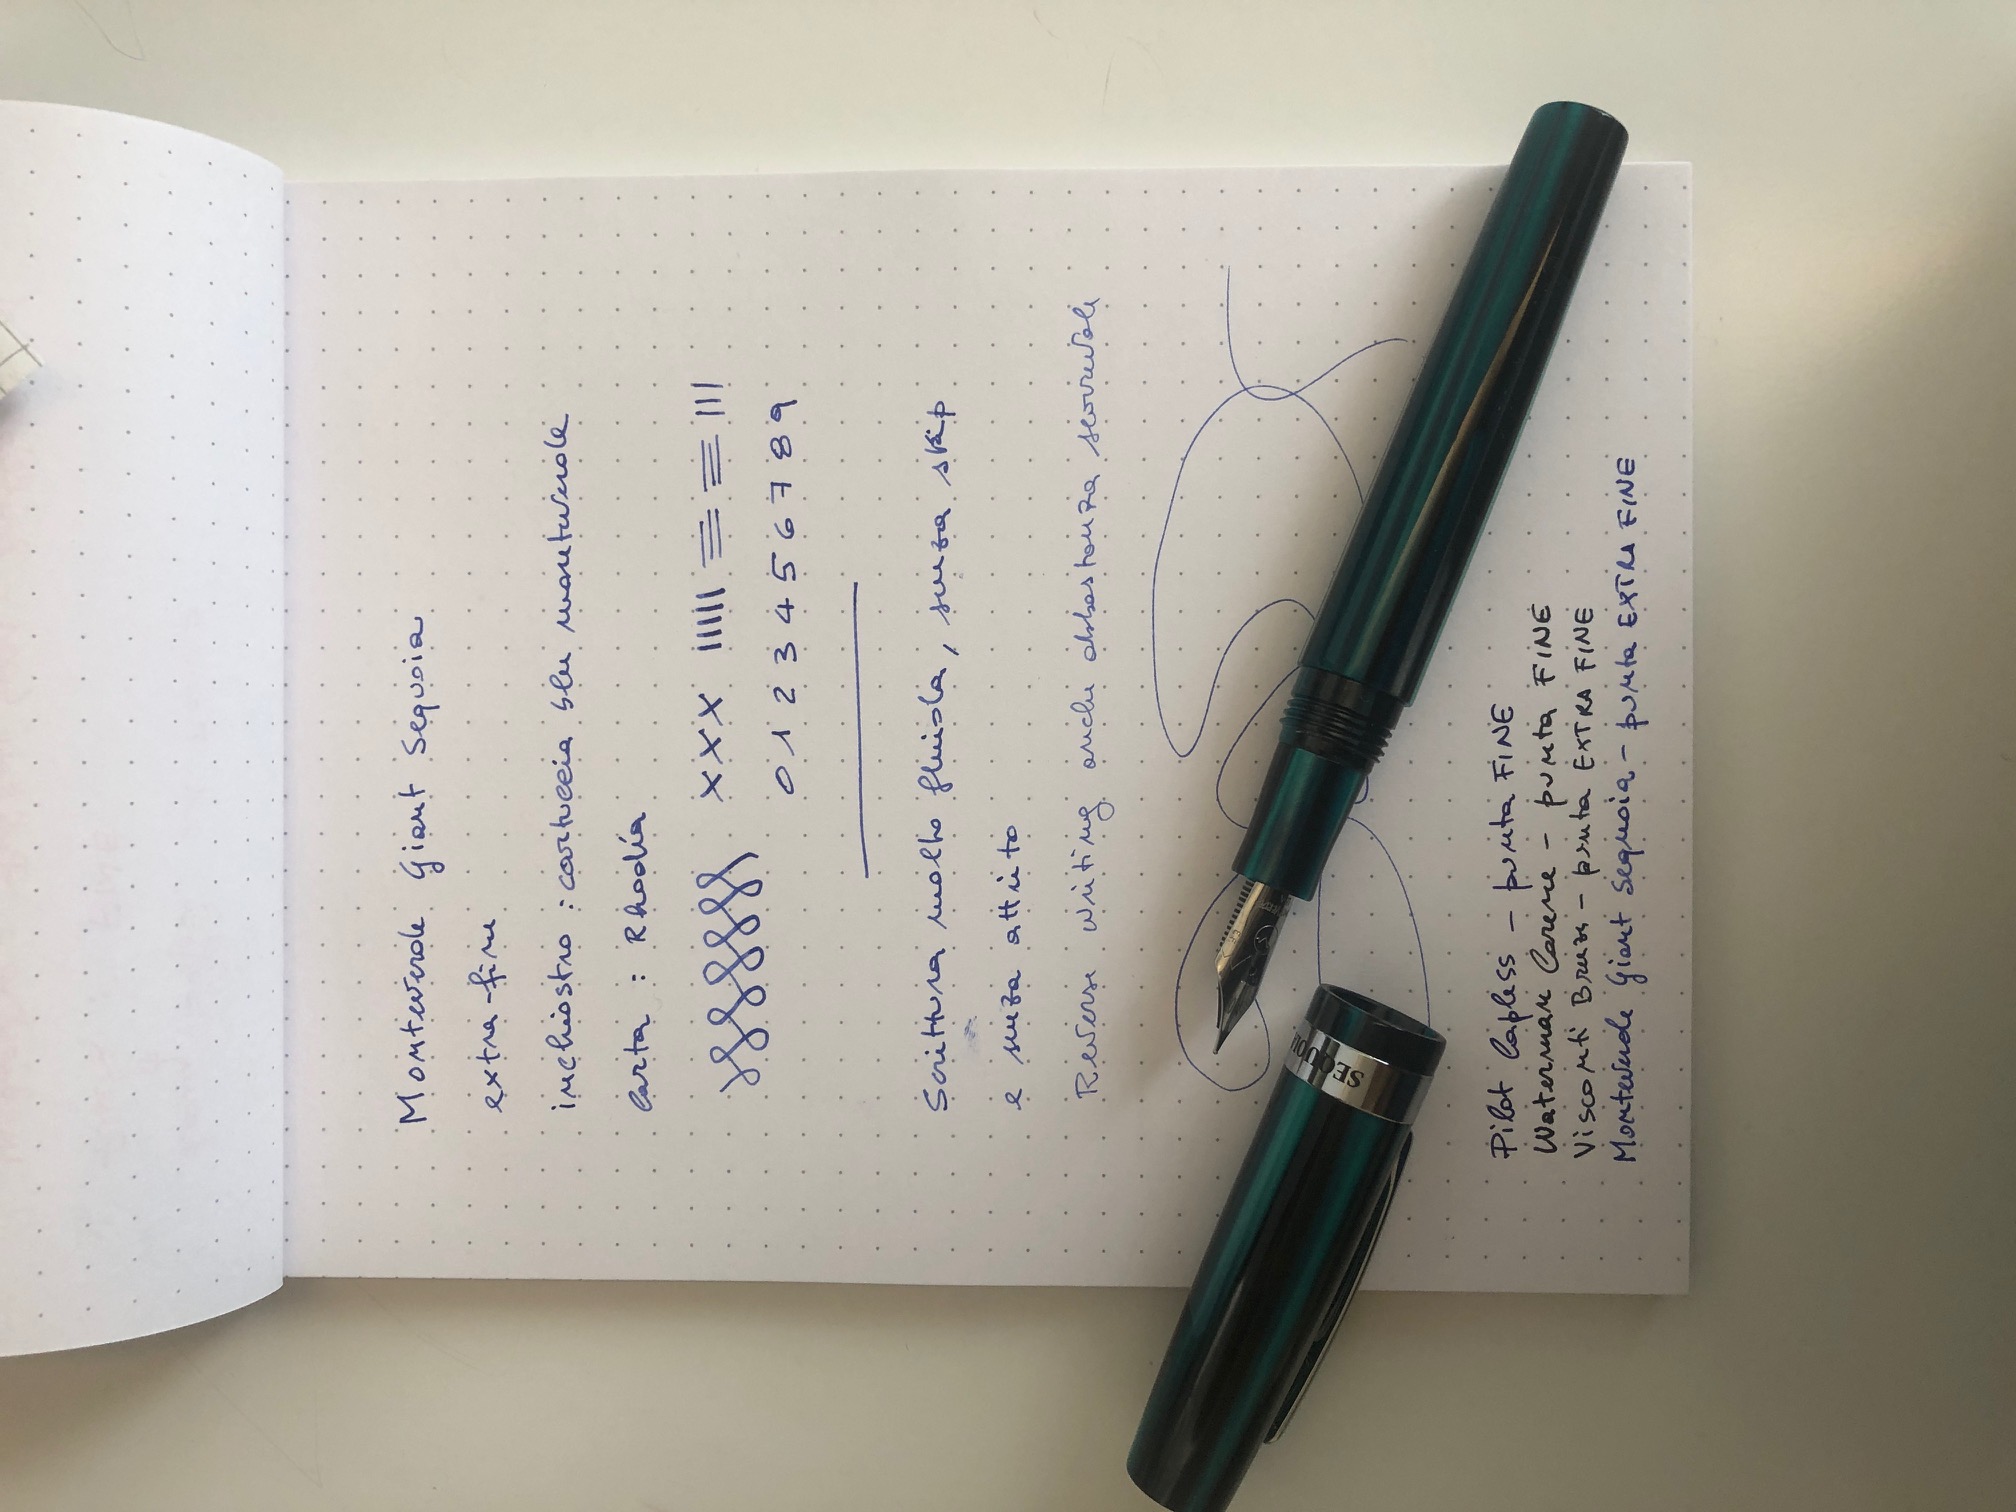 Monteverde Giant Sequoia
extra-fine
inchiostro: cartuccia blu monteverde
Carta: Rhodia
XXX
0 1 2 3 4 5 6 7 8 9
Scrittura molto fluida, senza skip
e senza attrito
Reverse writing anche abbastanza scorrevole
EF
SEQUOI
Pilot Capless - punta FINE
Waterman Carene - punta FINE
Visconti Breeze - punta EXTRA FINE
Monteverde Giant Sequoia - punta EXTRA FINE